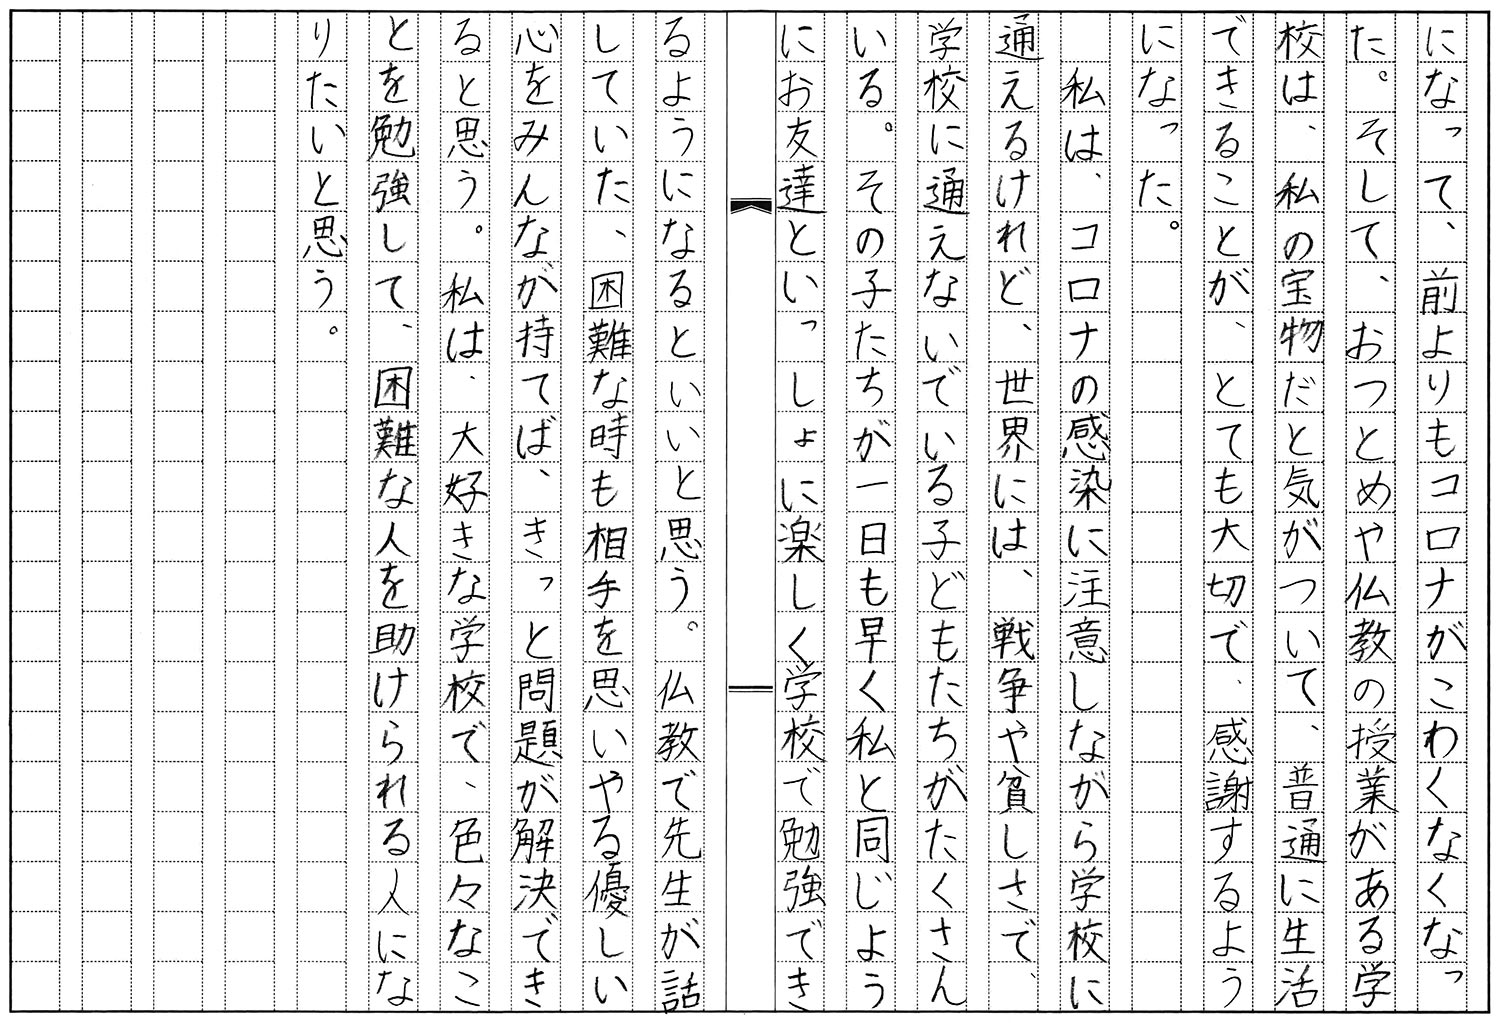 になって、前よりもコロナがこわくなくなっ
た。そして、おつとめや仏教の授業がある学
校は、私の宝物だと気がついて、普通に生活
できることが、とても大切で、感謝するよう
になった。
私は、コロナの感染に注意しながら学校に
通えるけれど、世界には、戦争や貧しさで、
学校に通えないでいる子どもたちがたくさん
いる。その子たちが一日も早く私と同じよう
にお友達といっしょに楽しく学校で勉強でき
るようになるといいと思う。仏教で先生が話
していた、困難な時も相手を思いやる優しい
心をみんなが持てば、きっと問題が解決でき
ると思う。私は、大好きな学校で、色々なこ
とを勉強して、困難な人を助けられる人にな
りたいと思う。